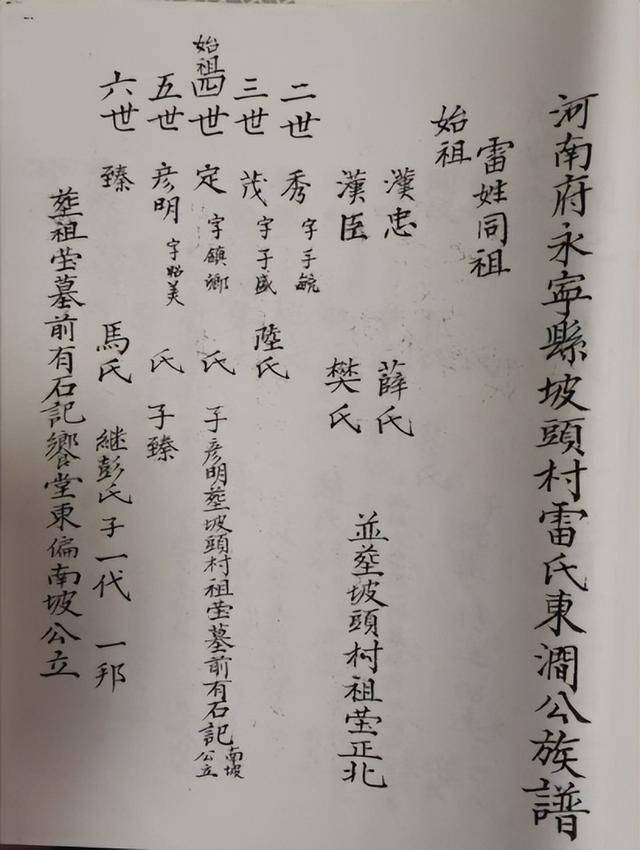 河南府永寧縣坡頭村雷氏東澗公族譜
雷姓同祖
始祖
漢忠 薛氏
漢臣 樊氏
並塟坡頭村祖塋正北
二世 秀 字子毓
三世 茂 字子盛 陸氏
始祖四世 定 字鎮卿 氏 子彥明塟坡頭村祖塋墓前有石記南坡公立
五世 彥明 字昭美 氏 子臻
六世 臻 馬氏 継彭氏子一代 一邦
塟祖塋墓前有石記饗堂東偏南坡公立